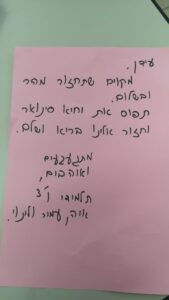 עידן.
מקווים שתחזור מהר
ובשלום.
תפוס את יחיא סינואר
וחזור אלינו בריא ושלם.
מתגעגעים
ואוהבים,
תלמידי ו'3
אוה, עמיר ולינוי.